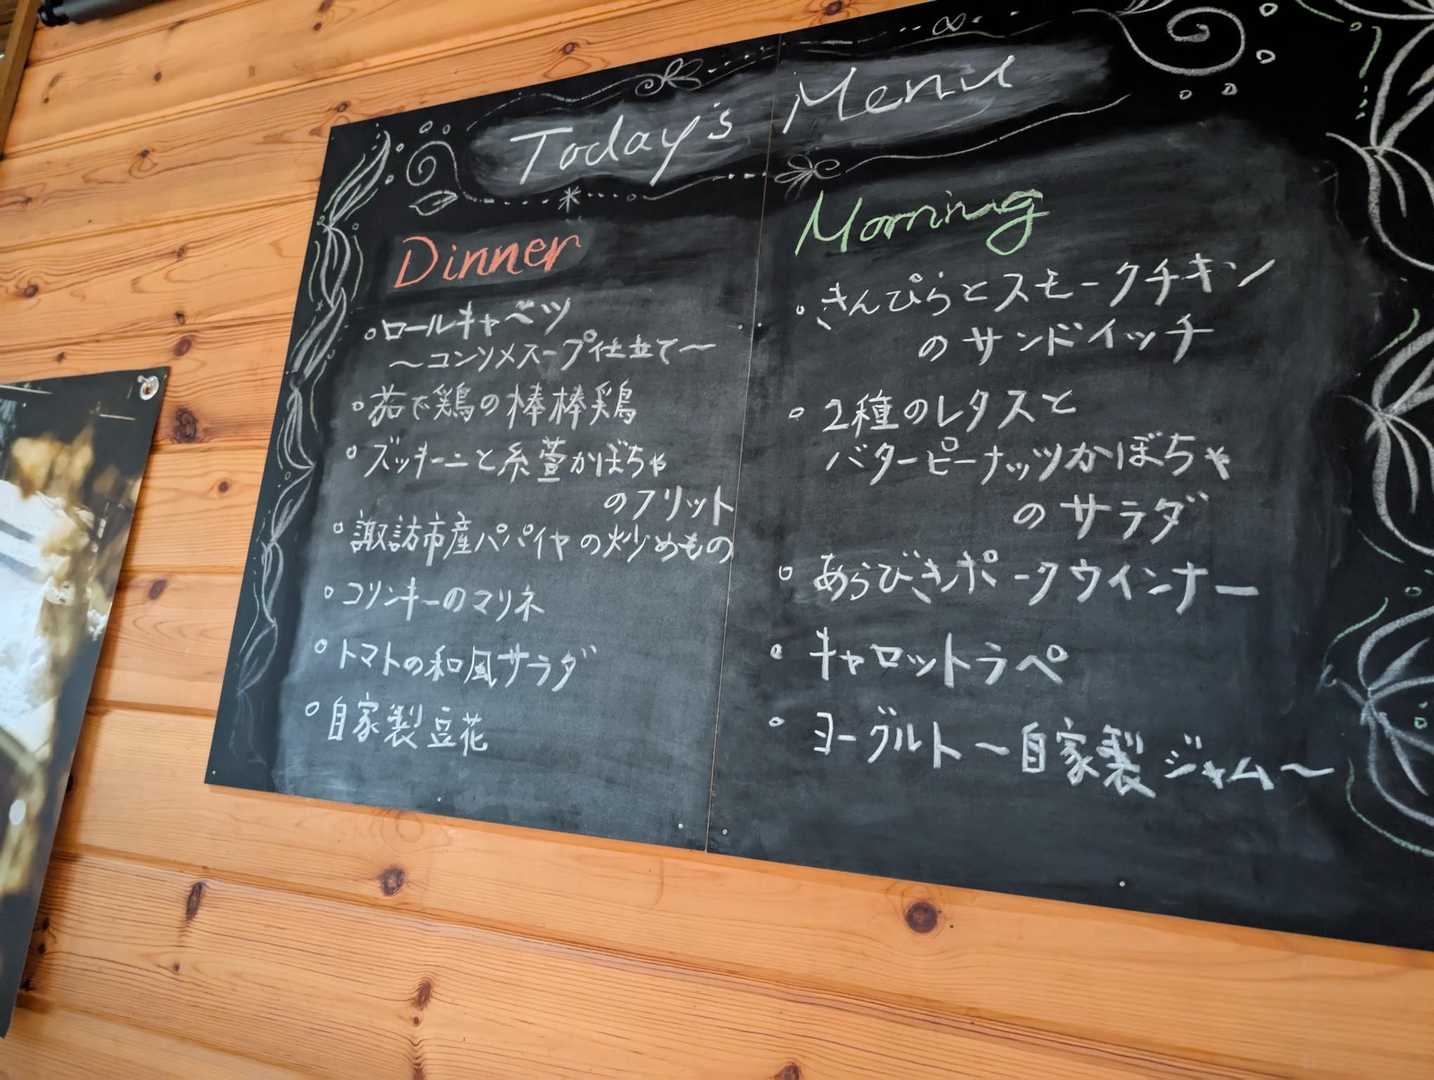 Today's Menu
Dinner
○ロールキャベツ
～コンソメスープ仕立て～
○茹で鶏の棒棒鶏
○ズッキーニと糸萱かぼちゃ
のフリット
○諏訪市産パパイヤの炒めもの
○コリンキーのマリネ
○トマトの和風サラダ
○自家製豆花
Morning
○きんぴらとスモークチキン
のサンドイッチ
○2種のレタスと
バターピーナッツかぼちゃ
のサラダ
○あらびきポークウインナー
○キャロットラペ
○ヨーグルト～自家製ジャム～